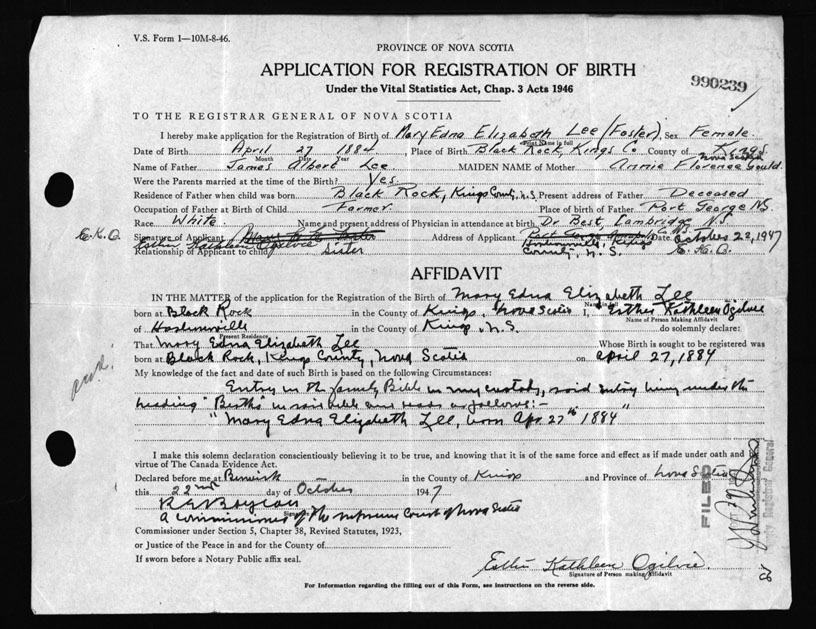 V.S. Form 1—10M-8-46.
PROVINCE OF NOVA SCOTIA
APPLICATION FOR REGISTRATION OF BIRTH
Under the Vital Statistics Act, Chap. 3 Acts 1946
990239
TO THE REGISTRAR GENERAL OF NOVA SCOTIA
I hereby make application for the Registration of Birth of Mary Edna Elizabeth Lee (Foster), Sex Female
Print Name in full
Date of Birth April 27 1884, Place of Birth Black Rock, Kings Co County of Kings
Month Day Year Nova Scotia
Name of Father James Albert Lee MAIDEN NAME of Mother Annie Florence Gould
Were the Parents married at the time of the Birth? Yes.
Residence of Father when child was born Black Rock, Kings County, N.S. Present address of Father Deceased
Occupation of Father at Birth of Child Farmer. Place of birth of Father Port George NS
Race White. Name and present address of Physician in attendance at birth Dr Best, N.S
E.K.O. Signature of Applicant Address of Applicant Date October 22, 1947
Esther Kathleen Ogilvie Kings
Relationship of Applicant to child Sister County, N. S. E. K. O.
AFFIDAVIT
IN THE MATTER of the application for the Registration of the Birth of Mary Edna Elizabeth Lee
Name in full
born at Black Rock in the County of Kings, Nova Scotia I, Esther Kathleen Ogilvie
Name of Person Making Affidavit
of in the County of Kings, N.S. do solemnly declare:
Present Residence
That Mary Edna Elizabeth Lee Whose Birth is sought to be registered was
born at Black Rock, Kings County, Nova Scotia on April 27, 1884
My knowledge of the fact and date of such Birth is based on the following Circumstances:
Entry in the family Bible in my custody, said entry being under the
heading "Births" in said bible and reads as follows:-
"Mary Edna Elizabeth Lee, born Apr. 27th 1884"
I make this solemn declaration conscientiously believing it to be true, and knowing that it is of the same force and effect as if made under oath and by
virtue of The Canada Evidence Act.
Declared before me at Berwick in the County of Kings and Province of Nova Scotia
this 22nd day of October 1947
A Commissioner of the Supreme Court of Nova Scotia
Commissioner under Section 5, Chapter 38, Revised Statutes, 1923,
or Justice of the Peace in and for the County of
If sworn before a Notary Public affix seal.
Esther Kathleen Ogilvie.
Signature of Person making Affidavit
For Information regarding the filling out of this Form, see instructions on the reverse side.
FILED
Deputy Registrar General